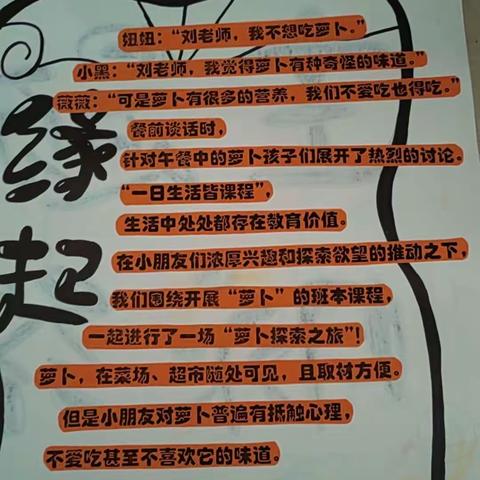 缘起
妞妞：“刘老师，我不想吃萝卜。”
小黑：“刘老师，我觉得萝卜有种奇怪的味道。”
薇薇：“可是萝卜有很多的营养，我们不爱吃也得吃。”
餐前谈话时，
针对午餐中的萝卜孩子们展开了热烈的讨论。
“一日生活皆课程”，
生活中处处都存在教育价值。
在小朋友们浓厚兴趣和探索欲望的推动之下，
我们围绕开展“萝卜”的班本课程，
一起进行了一场“萝卜探索之旅”！
萝卜，在菜场、超市随处可见，且取材方便。
但是小朋友对萝卜普遍有抵触心理，
不爱吃甚至不喜欢它的味道。